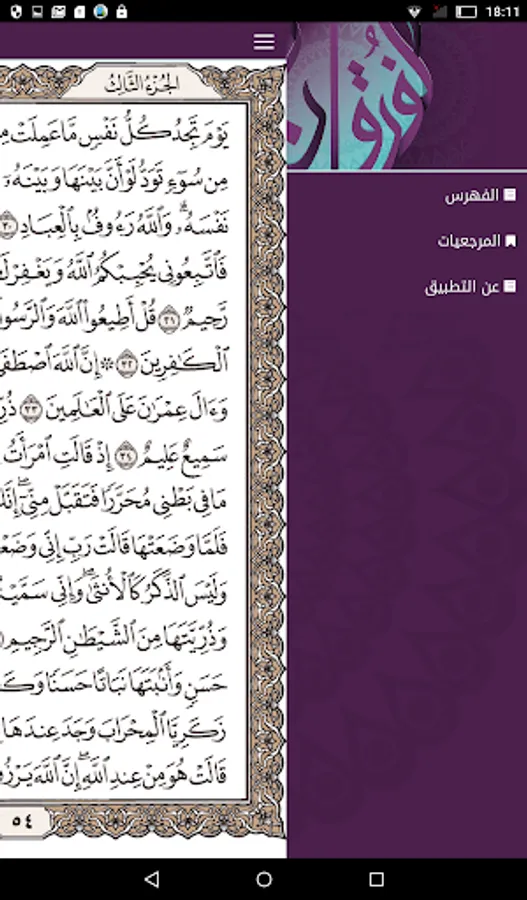 18:11
فرقان
الفهرس
المرجعيات
عن التطبيق
الجزء الثالث
يَوْمَ تَجِدُ كُلُّ نَفْسٍ مَّا عَمِلَتْ
مِن سُوٓءٍ تَوَدُّ لَوْ أَنَّ بَيْنَهَا وَبَيْنَهُۥٓ
نَفْسَهُۥۗ وَٱللَّهُ رَءُوفُۢ بِٱلْعِبَادِ ٣٠
فَٱتَّبِعُونِى يُحْبِبْكُمُ ٱللَّهُ وَيَغْفِرْ
رَّحِيمٌ ٣١ قُلْ أَطِيعُوا۟ ٱللَّهَ وَٱلرَّسُو
ٱلْكَٰفِرِينَ ٣٢ ۞ إِنَّ ٱللَّهَ ٱصْطَفَىٰٓ
وَءَالَ عِمْرَٰنَ عَلَى ٱلْعَٰلَمِينَ ٣٣
سَمِيعٌ عَلِيمٌ ٣٤ إِذْ قَالَتِ ٱمْرَأَتُ
مَا فِى بَطْنِى مُحَرَّرًا فَتَقَبَّلْ مِنِّىٓۖ إِنَّكَ
فَلَمَّا وَضَعَتْهَا قَالَتْ رَبِّ إِنِّى وَضَعْ
وَلَيْسَ ٱلذَّكَرُ كَٱلْأُنثَىٰۖ وَإِنِّى سَمَّيْ
وَذُرِّيَّتَهَا مِنَ ٱلشَّيْطَٰنِ ٱلرَّجِيمِ
حَسَنٍ وَأَنۢبَتَهَا نَبَاتًا حَسَنًا وَكَ
زَكَرِيَّا ٱلْمِحْرَابَ وَجَدَ عِندَهَا
قَالَتْ هُوَ مِنْ عِندِ ٱللَّهِۖ إِنَّ ٱللَّهَ يَرْزُ
٥٤